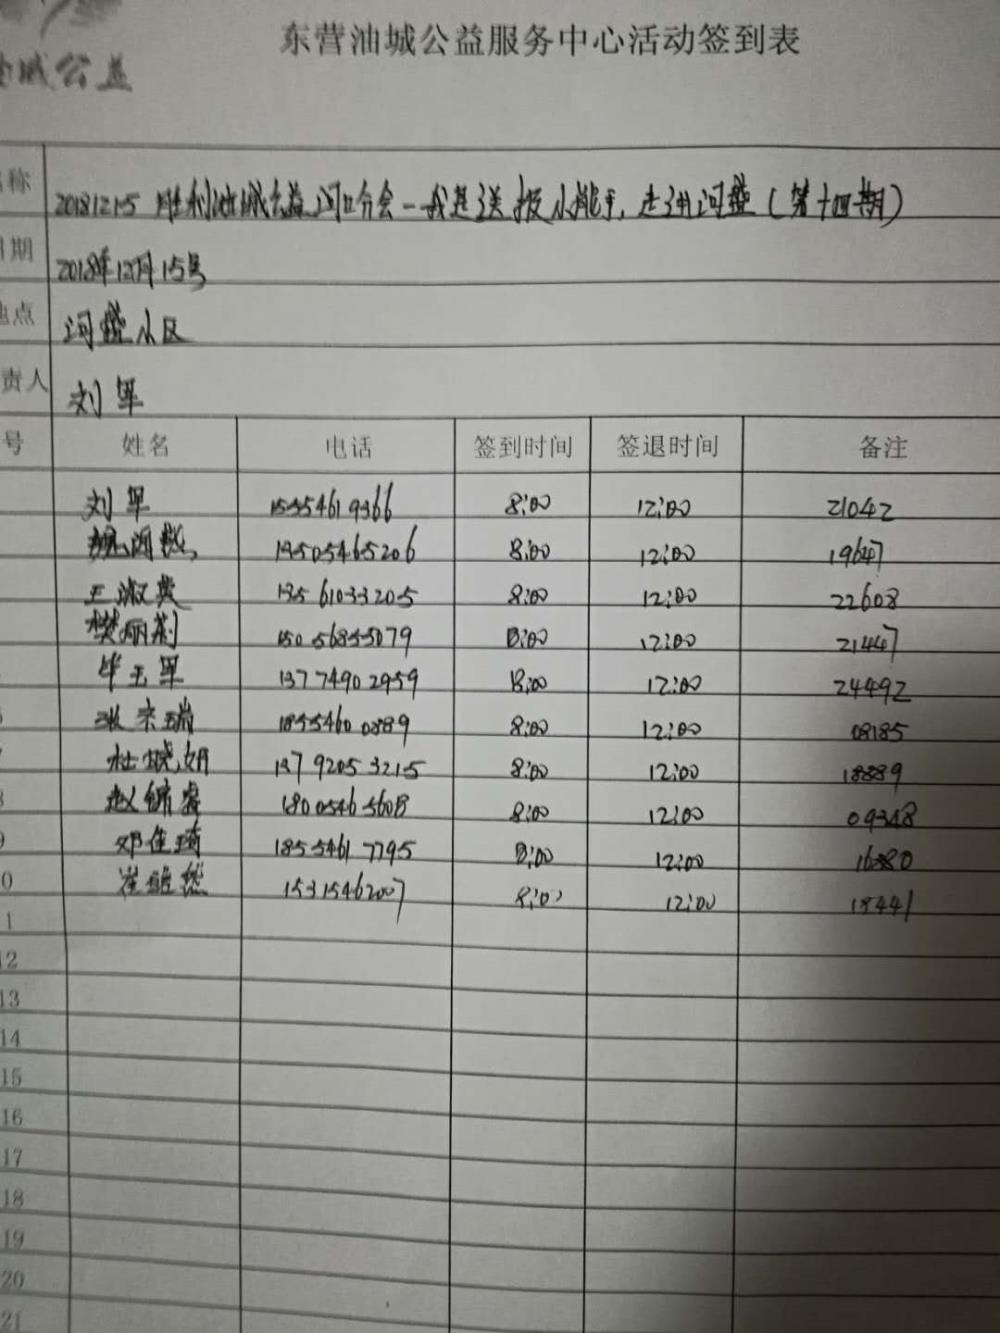 东营油城公益服务中心活动签到表
油城公益
名称 20181215 胜利油城公益河口分会-我是送报小能手,走进河盛(第十四期)
日期 2018年12月15号
地点 河盛小区
责人 刘军
号 姓名 电话 签到时间 签退时间 备注
刘军 15554619366 8:00 12:00 21042
13505465206 8:00 12:00 19647
王淑英 13561033205 8:00 12:00 22608
樊丽荆 15056855079 8:00 12:00 21447
毕玉军 13774902959 8:00 12:00 24492
张宗瑞 18554600889 8:00 12:00 08185
杜晓娟 13792053215 8:00 12:00 18889
赵 18005465608 8:00 12:00 09348
9 邓佳琦 18554617795 8:00 12:00 16380
0 崔继然 15315462007 8:00 12:00 18441
1
12
13
14
15
16
17
18
19
20
21